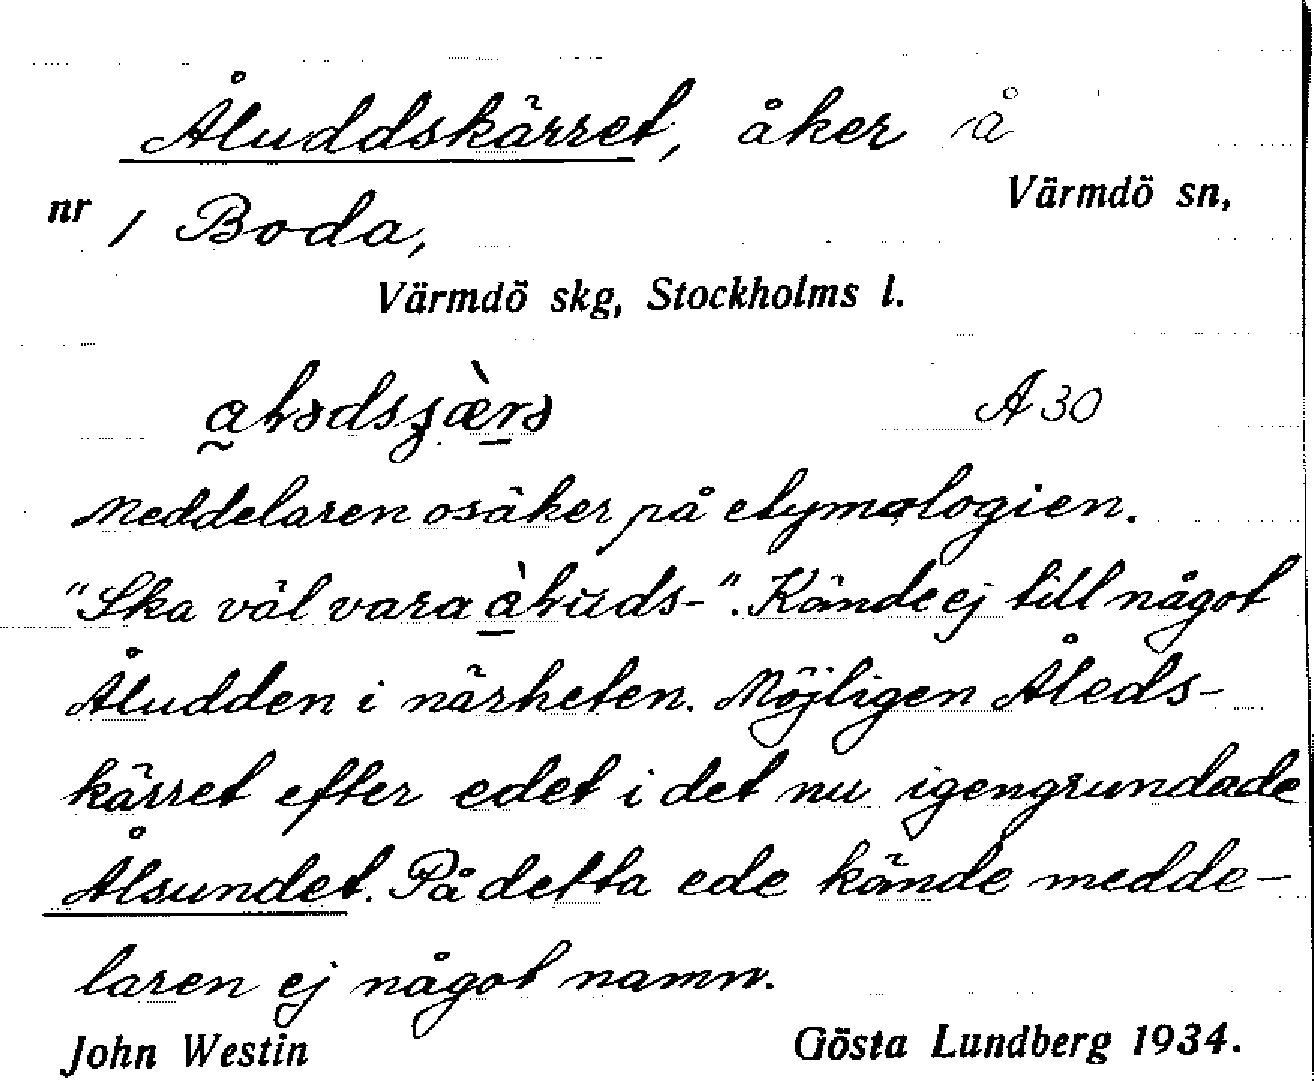 Åluddskärret, åker å
Värmdö sn,
nr 1 Boda,
Värmdö skg, Stockholms l.
A 30
Meddelaren osäker på etymologien.
"Ska väl vara -". Kände ej till något
Åludden i närheten. Möjligen Åleds-
kärret efter edet i det nu igengrundade
Ålsundet. På detta ede kände medde-
laren ej något namn.
John Westin Gösta Lundberg 1934.